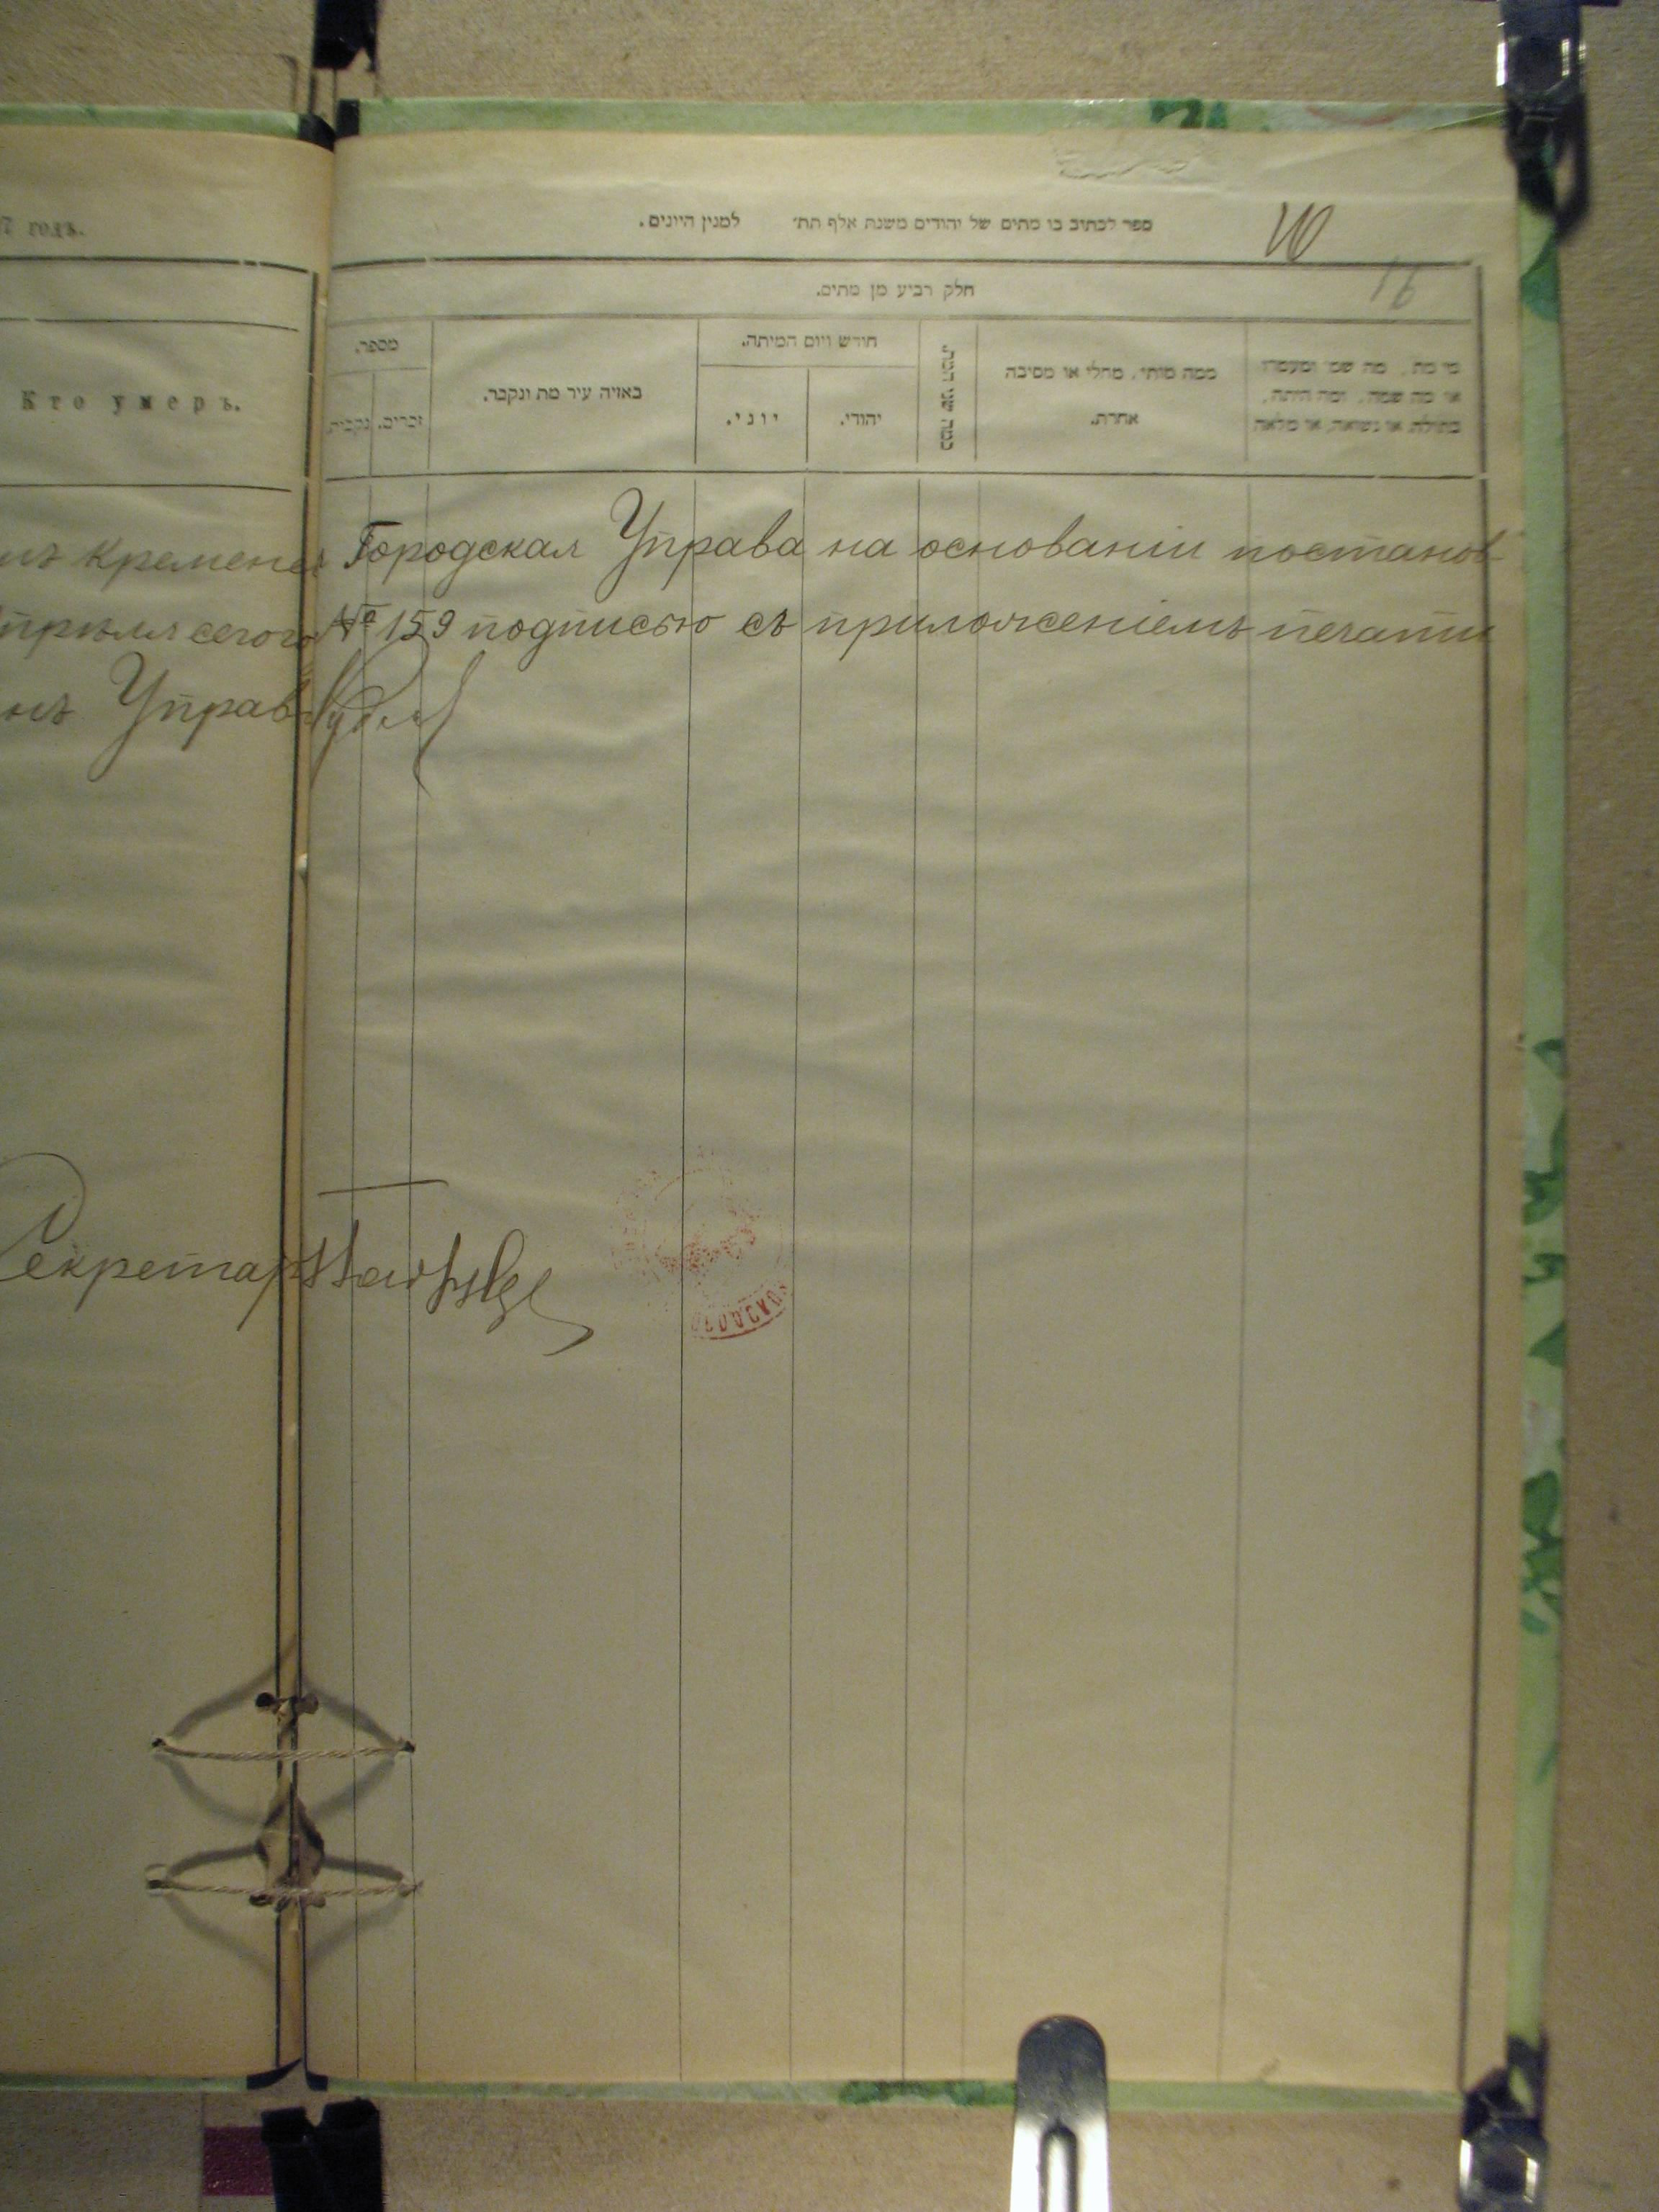 7 годъ.
ספר לכתוב בו מתים של יהודים משנת אלף תת׳ למנין היונים.
10
16
חלק רביע מן מתים.
Кто умеръ.
מספר.
זכרים.
נקבות.
באיזה עיר מת ונקבר.
חודש ויום המיתה.
יוני.
יהודי.
כמה שני המת.
ממה מותי, מחלי או מסיבה
אחרת.
מי מת, מה שמו ומעמדו
או מה שמה, ומה היתה,
בתולה או נשואה, או
Кремене Городская Управа на основаніи постанов
сего № 159 подписью съ приложеніемъ печати
Управ
Секретарь